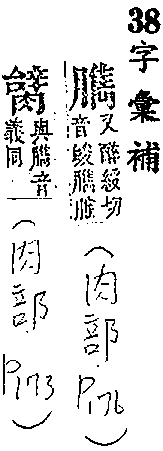 38 字彙補
臇 又醉綏切
音 臇
(肉部 P176)
與臇音
義同
(肉部 P173)